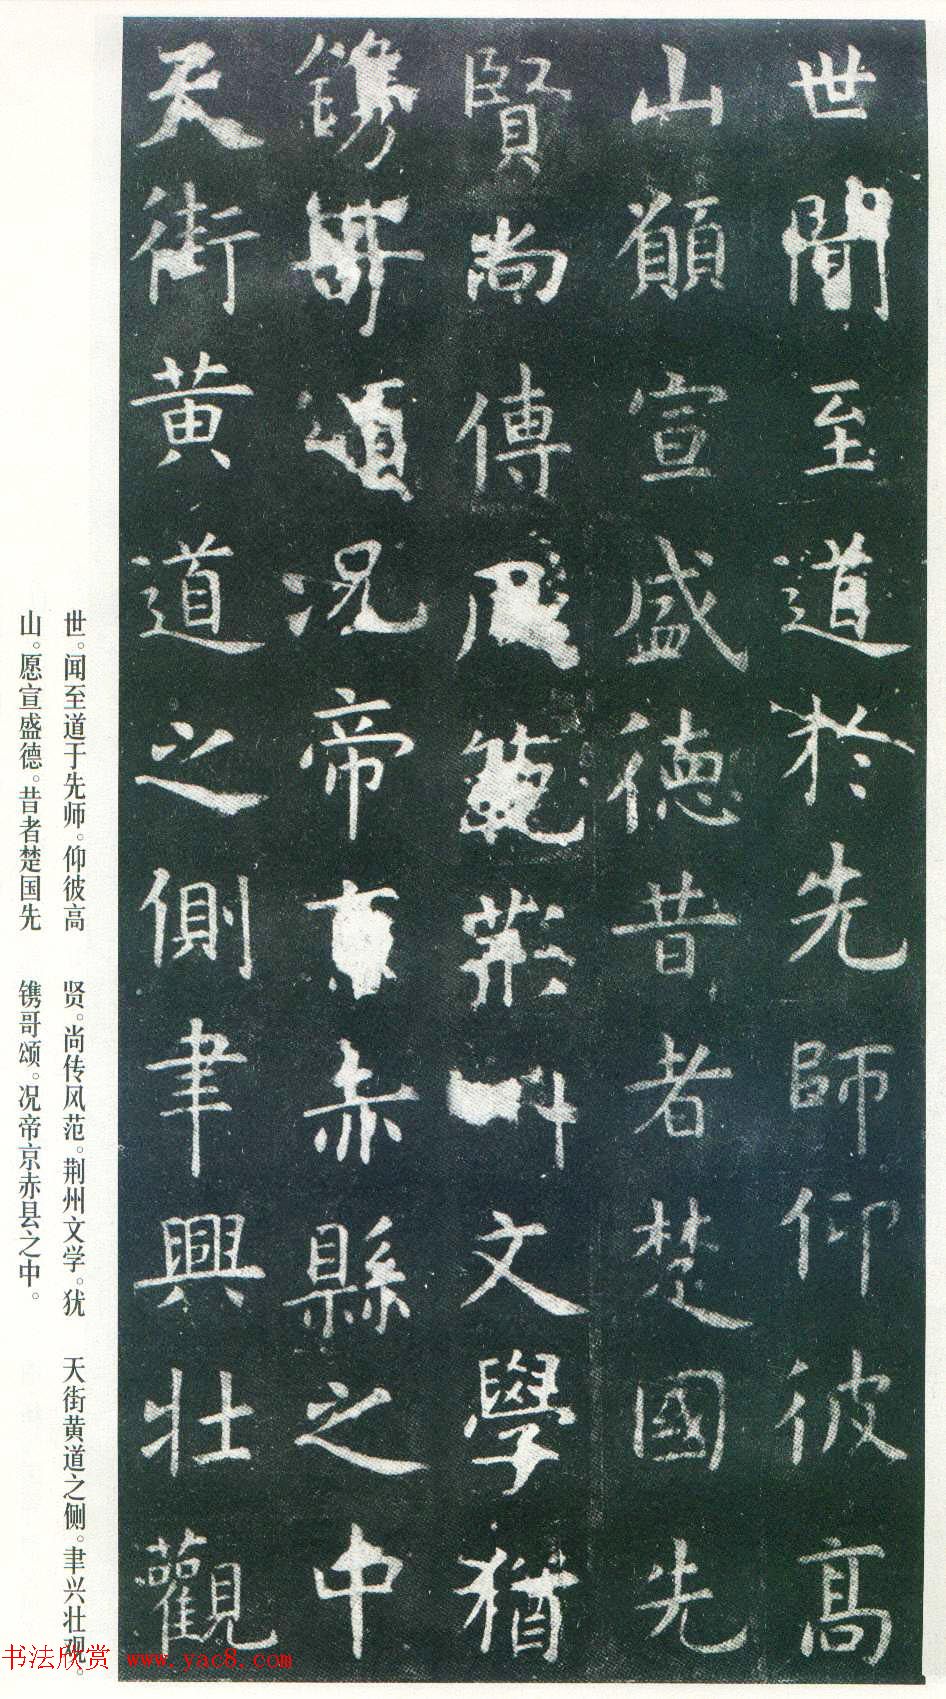 世聞至道於先師仰彼高
山願宣盛德昔者楚國先
賢尚傳風範荆州文學猶
鐫哥頌况帝京赤縣之中
天街黄道之側聿興壯觀
世。闻至道于先师。仰彼高
山。愿宣盛德。昔者楚国先
贤。尚传风范。荆州文学。犹
镌哥颂。况帝京赤县之中。
天街黄道之侧。聿兴壮观。
书法欣赏 www.yac8.com